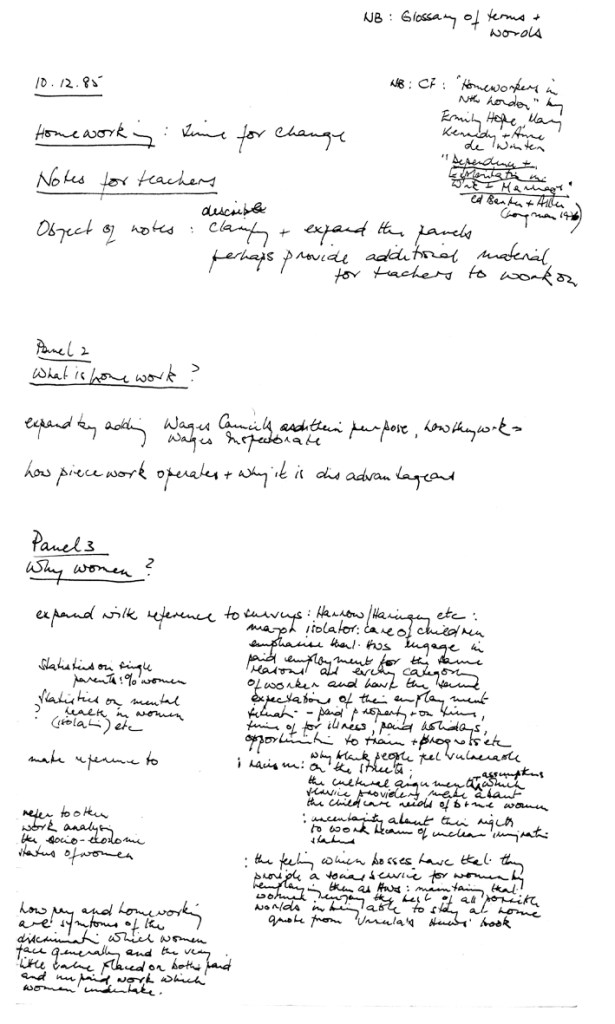 NB: Glossary of terms +
words
10.12.85
NB: CF: "Homeworkers in
Nth London" by
Emily Hope, Mary
Kennedy + Anne
de Winter
"Dependence +
Exploitation in
Work + Marriage"
ed Barker + Allen
(Longman 1976)
Homeworking: time for change
Notes for teachers
describe
Object of notes: clarify + expand the panels
perhaps provide additional material
for teachers to work on
Panel 2
What is homework?
expand by adding Wages Councils and their purpose, how they work
Wages Inspectorate
how piece work operates + why it is disadvantageous
Panel 3
Why women?
expand with reference to surveys: Harrow/Haringey etc:
major isolator: care of children
emphasise that HWs engage in
paid employment for the same
reasons as every category
of worker and have the same
expectations of their employment
situati - paid property + on time,
time off for illness, paid holidays,
opportunities to train + progress etc
statistics on single
parents: % women
statistics on mental
? health in women
(isolati) etc
make reference to
why black people feel vulnerable
: racism: on the streets;
the cultural arguments + assumptions which
service providers make about
the childcare needs of b + me women
: uncertainty about their rights
to work because of unclear immigratn
status
refer to other
work analysing
the socio-economic
status of women
: the feeling which bosses have that they
provide a social service for women by
employing them as HWs: maintaining that
women enjoy the best of all possible
worlds in being able to stay at home
quote from Ursula Huws' book
low pay and homeworking
are symptoms of the
discriminati which women
face generally and the very
little value placed on both paid
and unpaid work which
women undertake.